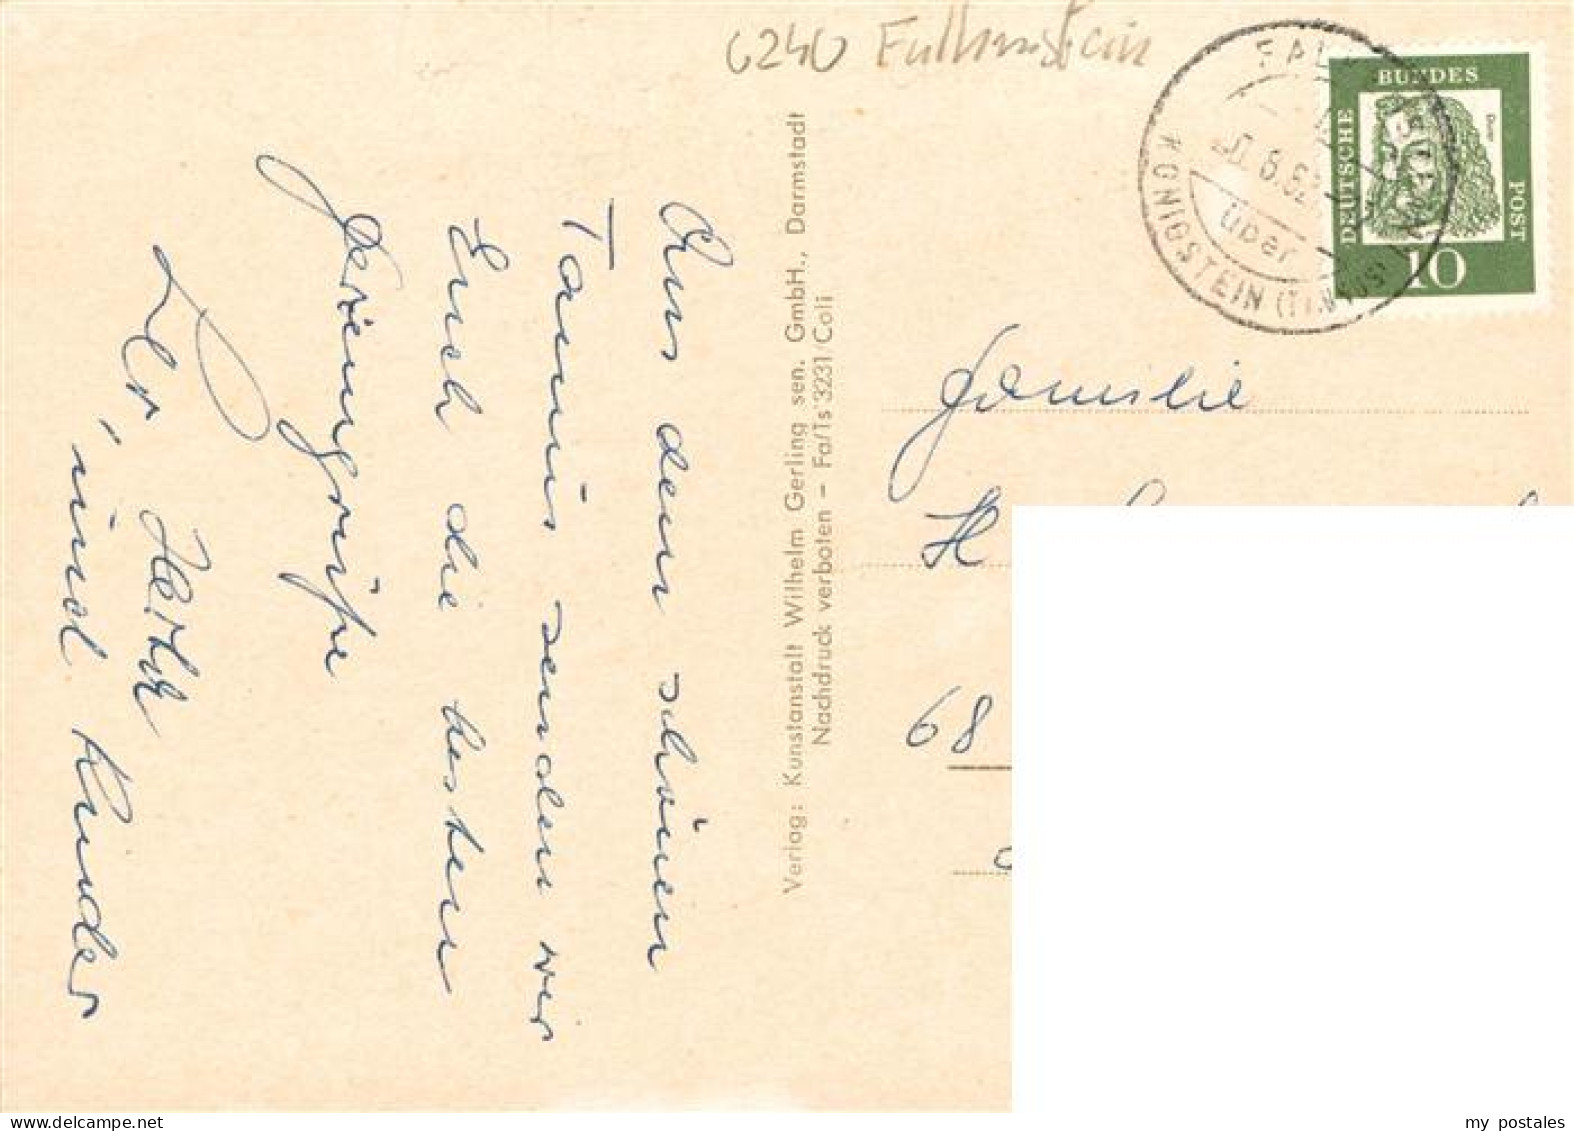 6240 Falkenstein
FALKENSTEIN
über
KÖNIGSTEIN (TAUNUS)
DEUTSCHE
BUNDES
POST
Dürer
10
Aus dem schönen
Taunus senden wir
Euch die besten
Feriengrüße
und Kinder
Verlag: Kunstanstalt Wilhelm Gerling sen. GmbH., Darmstadt
Nachdruck verboten – Fa/Ts 3231/Coli
Familie
H
68
my postales